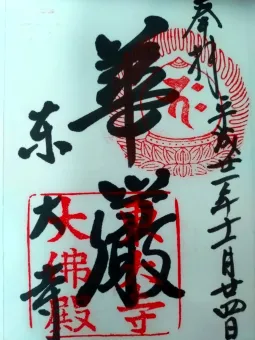 奉拝 平成廿二年十二月廿四日
華厳
东大寺
東大寺
大佛殿